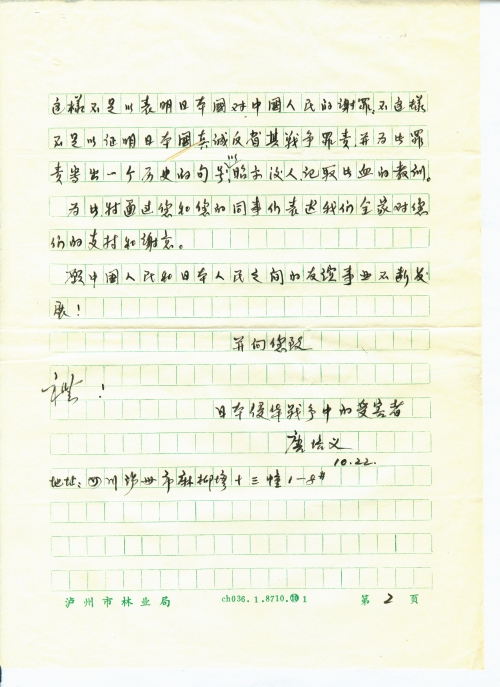 这样不足以表明日本国对中国人民的谢罪,不这样
不足以证明日本国真诚反省其战争罪责,并为此罪
责写出一个历史的句号,以昭示后人,记取此血的教训。
为此特通过您和您的同事们表达我们全家对您
们的支持和谢意。
愿中国人民和日本人民之间的友谊事业不断发
展!
并向您致
礼!
日本侵华战争中的受害者
唐培义
10.22.
地址:四川泸州市麻柳湾十三幢1-8#
泸州市林业局 ch036.1.8710. 1 第 2 页